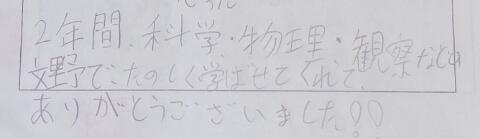 2年間、科学・物理・観察などの
文野でたのしく学ばせてくれて、
ありがとうございました!!